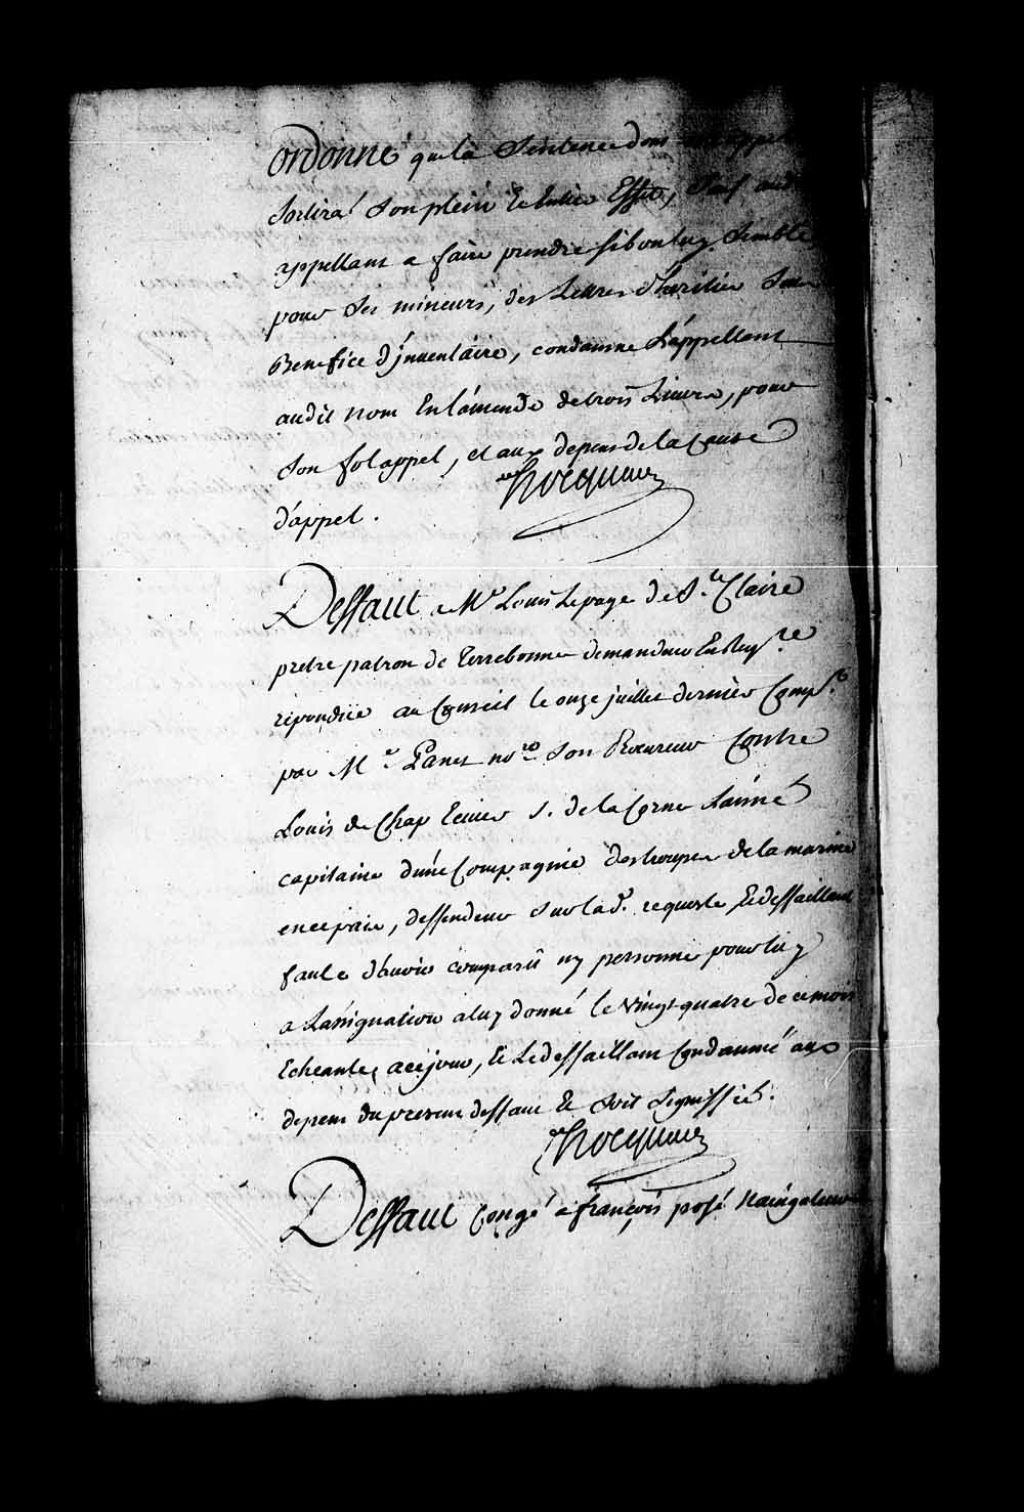 ordonne que la Sentence dont
Sortira Son plein Et Entier Effet, Sauf aud
appellant a faire prendre Si bon luy Semble
pour Ses mineurs, des Lettres d'heritier Sous
Benefice d'jnventaire, condamne L'appellant
audit nom En L'amende de trois Livres, pour
Son fol appel, et aux depens de la Cause
d'appel.
hocquart
Deffaut a Mr Louis Lepage de Ste Claire
pretre patron de Terrebonne demandeur En Reqte
repondüe au Conseil le onze juillet dernier Compt
par Me Panet nore Son Procureur Contre
Louis de Chap Ecuier S. de la Corne L'ainé
capitaine d'une Compagnie des troupes de la marine
en ce païs, deffendeur Sur lad. requeste Et deffaillant
faute d'avoir comparû ny personne pour luy
a L'assignation a luy donné le vingt quatre de ce mois
Echeante a ce jour, Et Le deffaillant Condamné aux
depens du present deffaut Et Soit Signiffié.
hocquart
Deffaut Congé a françois posé